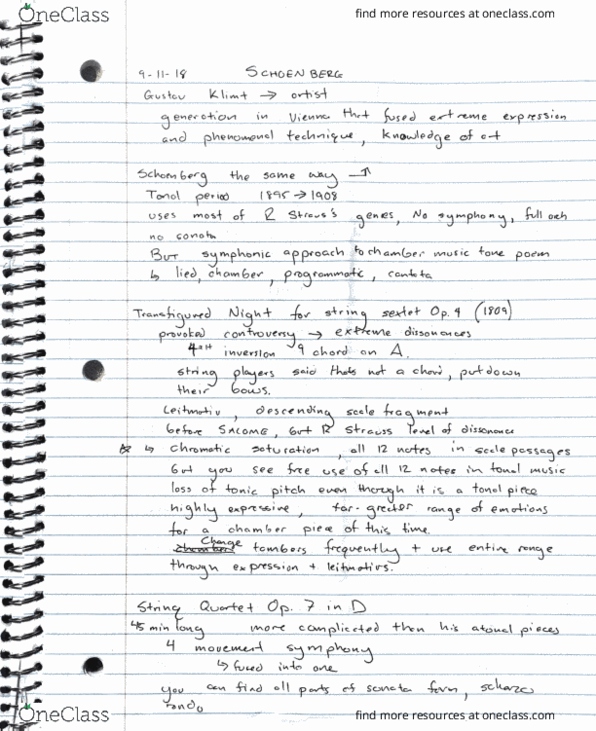 OneClass
find more resources at oneclass.com
9-11-18 SCHOENBERG
Gustav Klimt → artist
generation in Vienna that fused extreme expression
and phenomenal technique, knowledge of art
Schoenberg the same way
Tonal period 1895 → 1908
uses most of R Strauss's genres, No symphony, full orch
no sonata
BUT symphonic approach to chamber music tone poem
↳ lied, chamber, programmatic, cantata
Transfigured Night for string sextet Op. 4 (1809)
provoked controversy → extreme dissonances
4th inversion 9 chord on A.
string players said thats not a chord, put down
their bows.
Leitmotiv, descending scale fragment
before SALOME, but R Strauss level of dissonance
↳ Chromatic saturation, all 12 notes in scale passages
but you see free use of all 12 notes in tonal music
loss of tonic pitch even through it is a tonal piece
highly expressive, far-greater range of emotions
for a chamber piece of this time.
Change tombers frequently + use entire range
through expression + leitmotivs.
String Quartet Op. 7 in D
45 min long more complicated then his atonal pieces
4 movement symphony
↳ fused into one
you can find all parts of sonata form, scherzo
rondo
OneClass
find more resources at oneclass.com